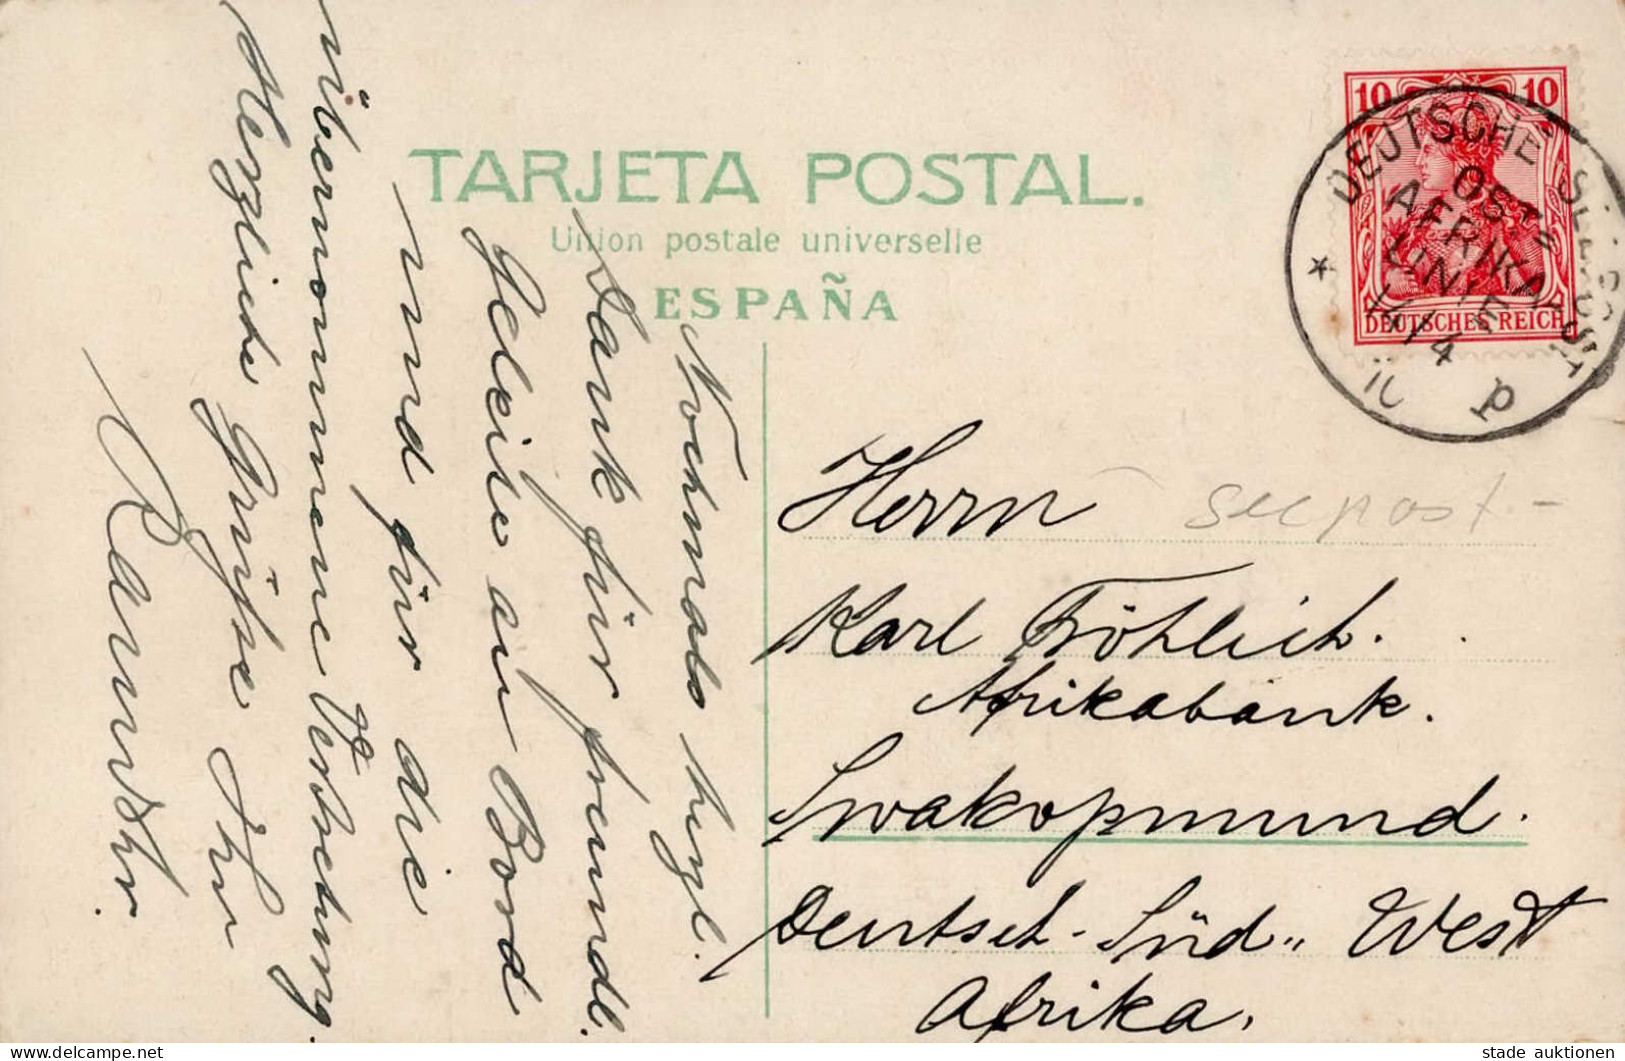 TARJETA POSTAL.
Union postale universelle
ESPAÑA
10 10
DEUTSCHES REICH
DEUTSCHE SEEPOST
OST-
AFRIKA-
LINIE
14/4
10
p
Nochmals hrzl.
Dank für freundl.
Geleite an Bord
und für die
übernommene Vertretung.
Herzliche Grüße Ihr
Herrn
seepost-
Karl Fröhlich.
Afrikabank.
Swakopmund.
Deutsch-Süd-West
Afrika.
www.delcampe.net
stade auktionen